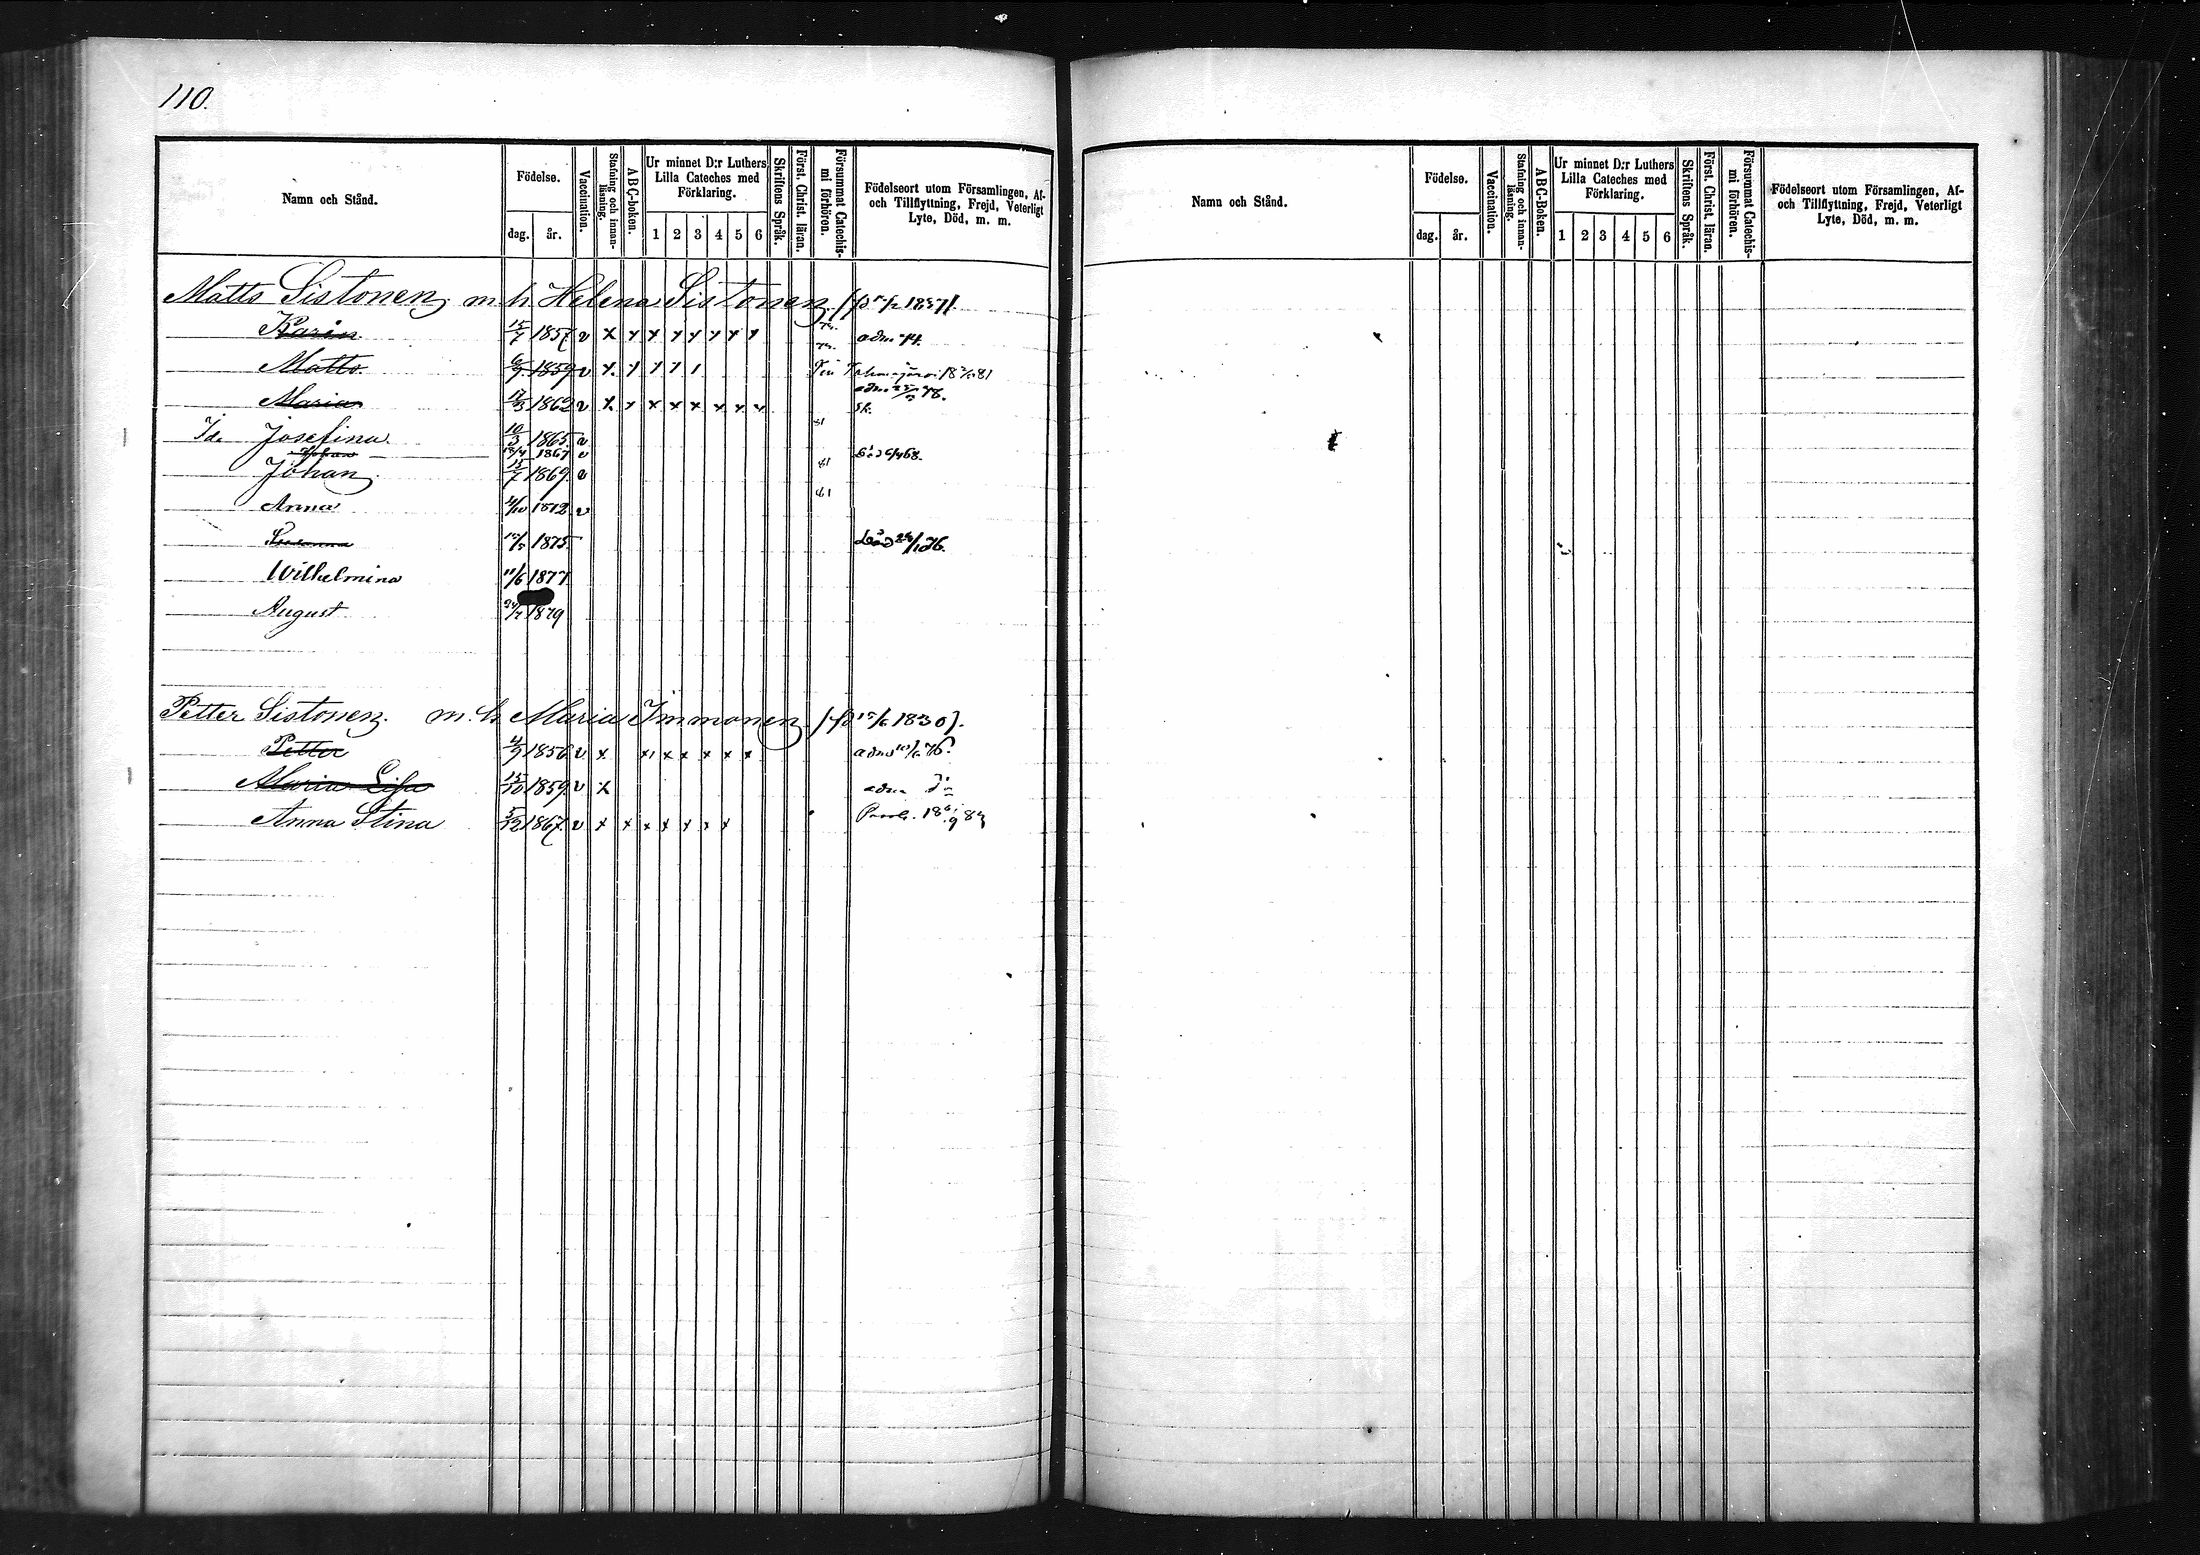 110.
Namn och Stånd. Födelse. dag. år. Vaccination. Stafning och innanläsning. ABC-boken. Ur minnet D:r Luthers Lilla Cateches med Förklaring. 1 2 3 4 5 6 Skriftens Språk. Först. Christ. läran. Försummat Catechismi förhören. Födelseort utom Församlingen, Af- och Tillflyttning, Frejd, Veterligt Lyte, Död, m. m.
Matts Sistonen m. h. Helena Sistonen 1837
Karin 15/7 1857 v x x x x x x x x adm 74.
Matts 6/9 1859 v x x x x x
Maria 12/3 1862 v x x x x x x x x
Ida Josefina 10/3 1865 v 81
Johan 1867 v död 68.
Johan 15/7 1869 v 81
Anna 4/10 1872 v 81
Susanna 1875 död 76.
Wilhelmina 11/6 1877
August 24/7 1879
Petter Sistonen m. h. Maria Immonen (f. 15/6 1830).
Petter 4/9 1856 v x x x x x x x adm 76.
Maria Lisa 15/10 1859 v x adm
Anna Stina 5/12 1867 v x x x x x x x
Namn och Stånd. Födelse. dag. år. Vaccination. Stafning och innanläsning. ABC-Boken. Ur minnet D:r Luthers Lilla Cateches med Förklaring. 1 2 3 4 5 6 Skriftens Språk. Först. Christ. läran. Försummat Catechismi förhören. Födelseort utom Församlingen, Af- och Tillflyttning, Frejd, Veterligt Lyte, Död, m. m.